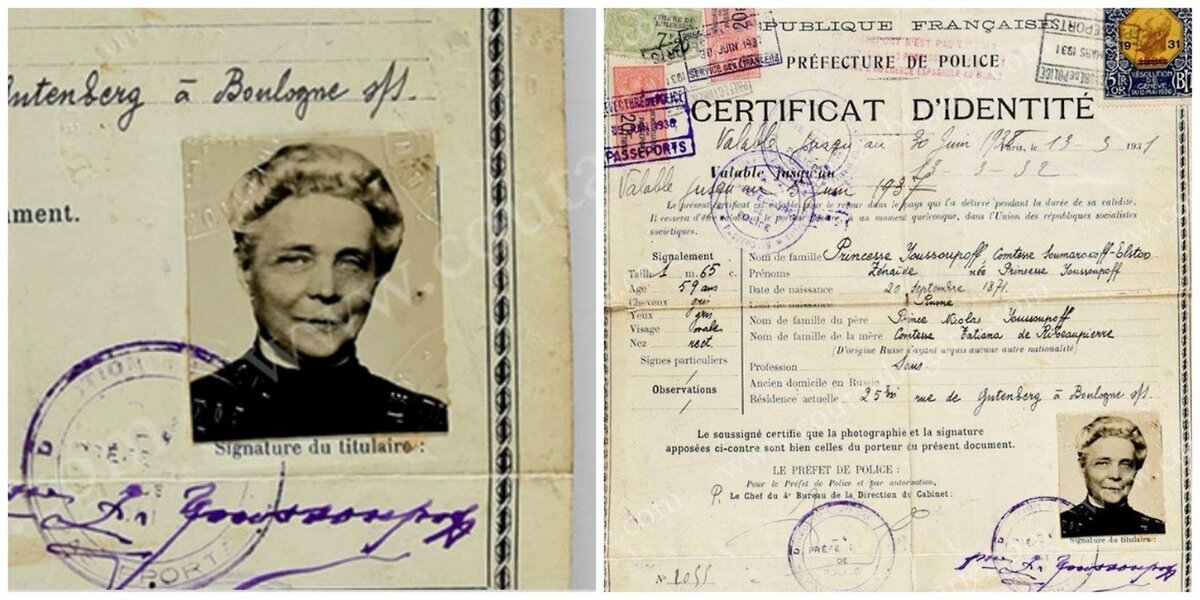 Gutenberg à Boulogne s/s.
ament.
Signature du titulaire :
Youssoupoff
RÉPUBLIQUE FRANÇAISE
PRÉFECTURE DE POLICE
CERTIFICAT D'IDENTITÉ
Valable jusqu'au 30 Juin Paris, le 13-3 1931
Valable jusqu'au 13-3-32
Valable jusqu'au 1937
Le présent certificat est valable pour le retour dans le pays qui l'a délivré pendant la durée de sa validité.
Il cessera d'être valable si le porteur pénètre à un moment quelconque, dans l'Union des républiques socialistes
soviétiques.
Signalement
Taille 1 m. 65 c.
Age 59 ans
Cheveux gris
Yeux gris
Visage ovale
Nez rect
Signes particuliers
/
Observations
/
Nom de famille Princesse Youssoupoff, Comtesse Soumarokoff-Elston
Prénoms Zénaïde née Princesse Youssoupoff
Date de naissance 20 Septembre 1871.
Lieu de naissance Russie
Nom de famille du père Prince Nicolas Youssoupoff
Nom de famille de la mère Comtesse Tatiana de Ribeaupierre
(D'origine Russe n'ayant acquis aucune autre nationalité)
Profession Sans
Ancien domicile en Russie
Résidence actuelle 25 bis rue de Gutenberg à Boulogne s/s.
Le soussigné certifie que la photographie et la signature
apposées ci-contre sont bien celles du porteur du présent document.
LE PRÉFET DE POLICE :
Pour le Préfet de Police et par autorisation,
P. Le Chef du 4e Bureau de la Direction du Cabinet :
Signature du titulaire :
Youssoupoff
N° 2055
PASSEPORTS
SERVICE DES ÉTRANGERS
30 JUIN 193
1931
5 FR OR